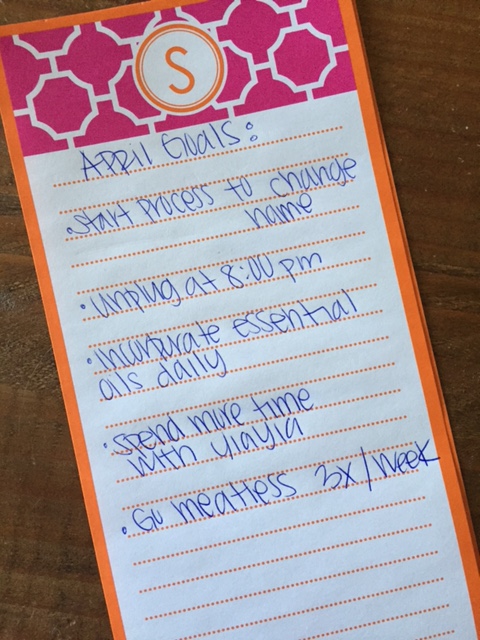 S
April Goals:
• start process to change
name
• unplug at 8:00 pm
• incorporate essential
oils daily
• spend more time
with yiayia
• Go meatless 3x/week